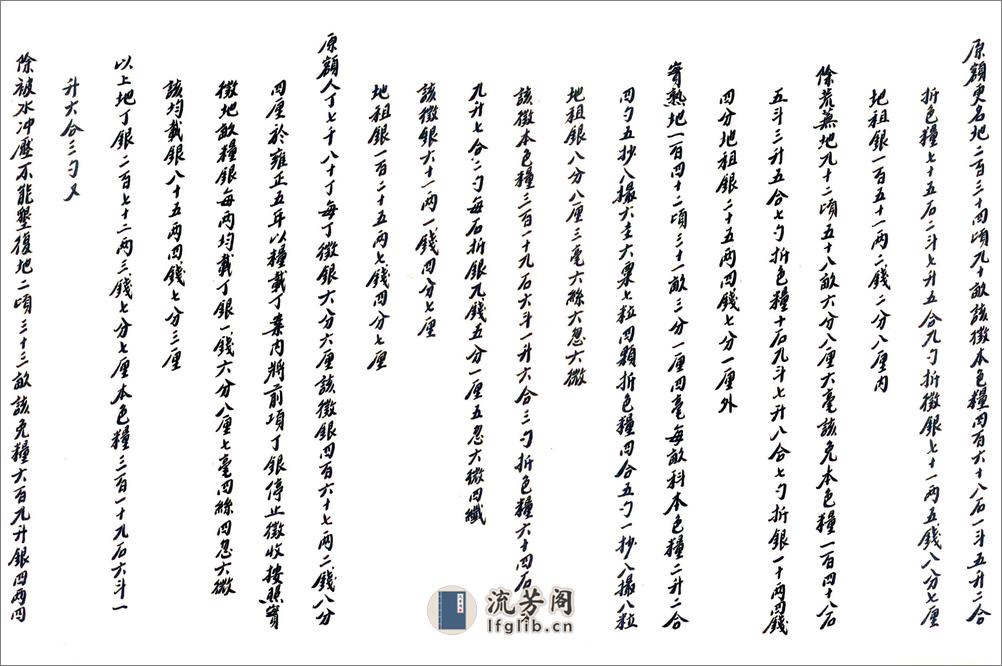 原額更名地二百三十四頃九十畝該徵本色糧四百六十八石一斗五升二合
折色糧七十五石二斗七升五合九勺折徵銀七十一兩五錢八分七厘
地租銀一百五十一兩二錢二分八厘內
除荒蕪地九十二頃五十八畝六分八厘六毫該免本色糧一百四十八石
五斗三升五合七勺折色糧十石九斗七升八合七勺折銀一十兩四錢
四分地租銀二十五兩四錢七分一厘外
實熟地一百四十二頃三十一畝三分一厘四毫每畝科本色糧二升二合
四勺五抄八撮六圭六粟七粒四顆折色糧四合五勺一抄八撮八粒
地租銀八分八厘三毫六絲六忽六微
該徵本色糧三百一十九石六斗一升六合三勺折色糧六十四石
九升七合二勺每石折銀九錢五分一厘五忽六微四纖
該徵銀六十一兩一錢四分七厘
地租銀一百二十五兩七錢四分七厘
原額人丁七千八十丁每丁徵銀六分六厘該徵銀四百六十七兩二錢八分
四厘於雍正五年以糧載丁案內將前項丁銀停止徵收按照實
徵地畝糧銀每兩均載丁銀一錢六分八厘七毫四絲四忽六微
該均載銀八十五兩四錢七分三厘
以上地丁銀二百七十二兩三錢七分七厘本色糧三百一十九石六斗一
升六合三勺又
除被水冲壓不能墾復地二頃三十三畝該免糧六百九升銀四兩四
流芳阁
lfglib.cn